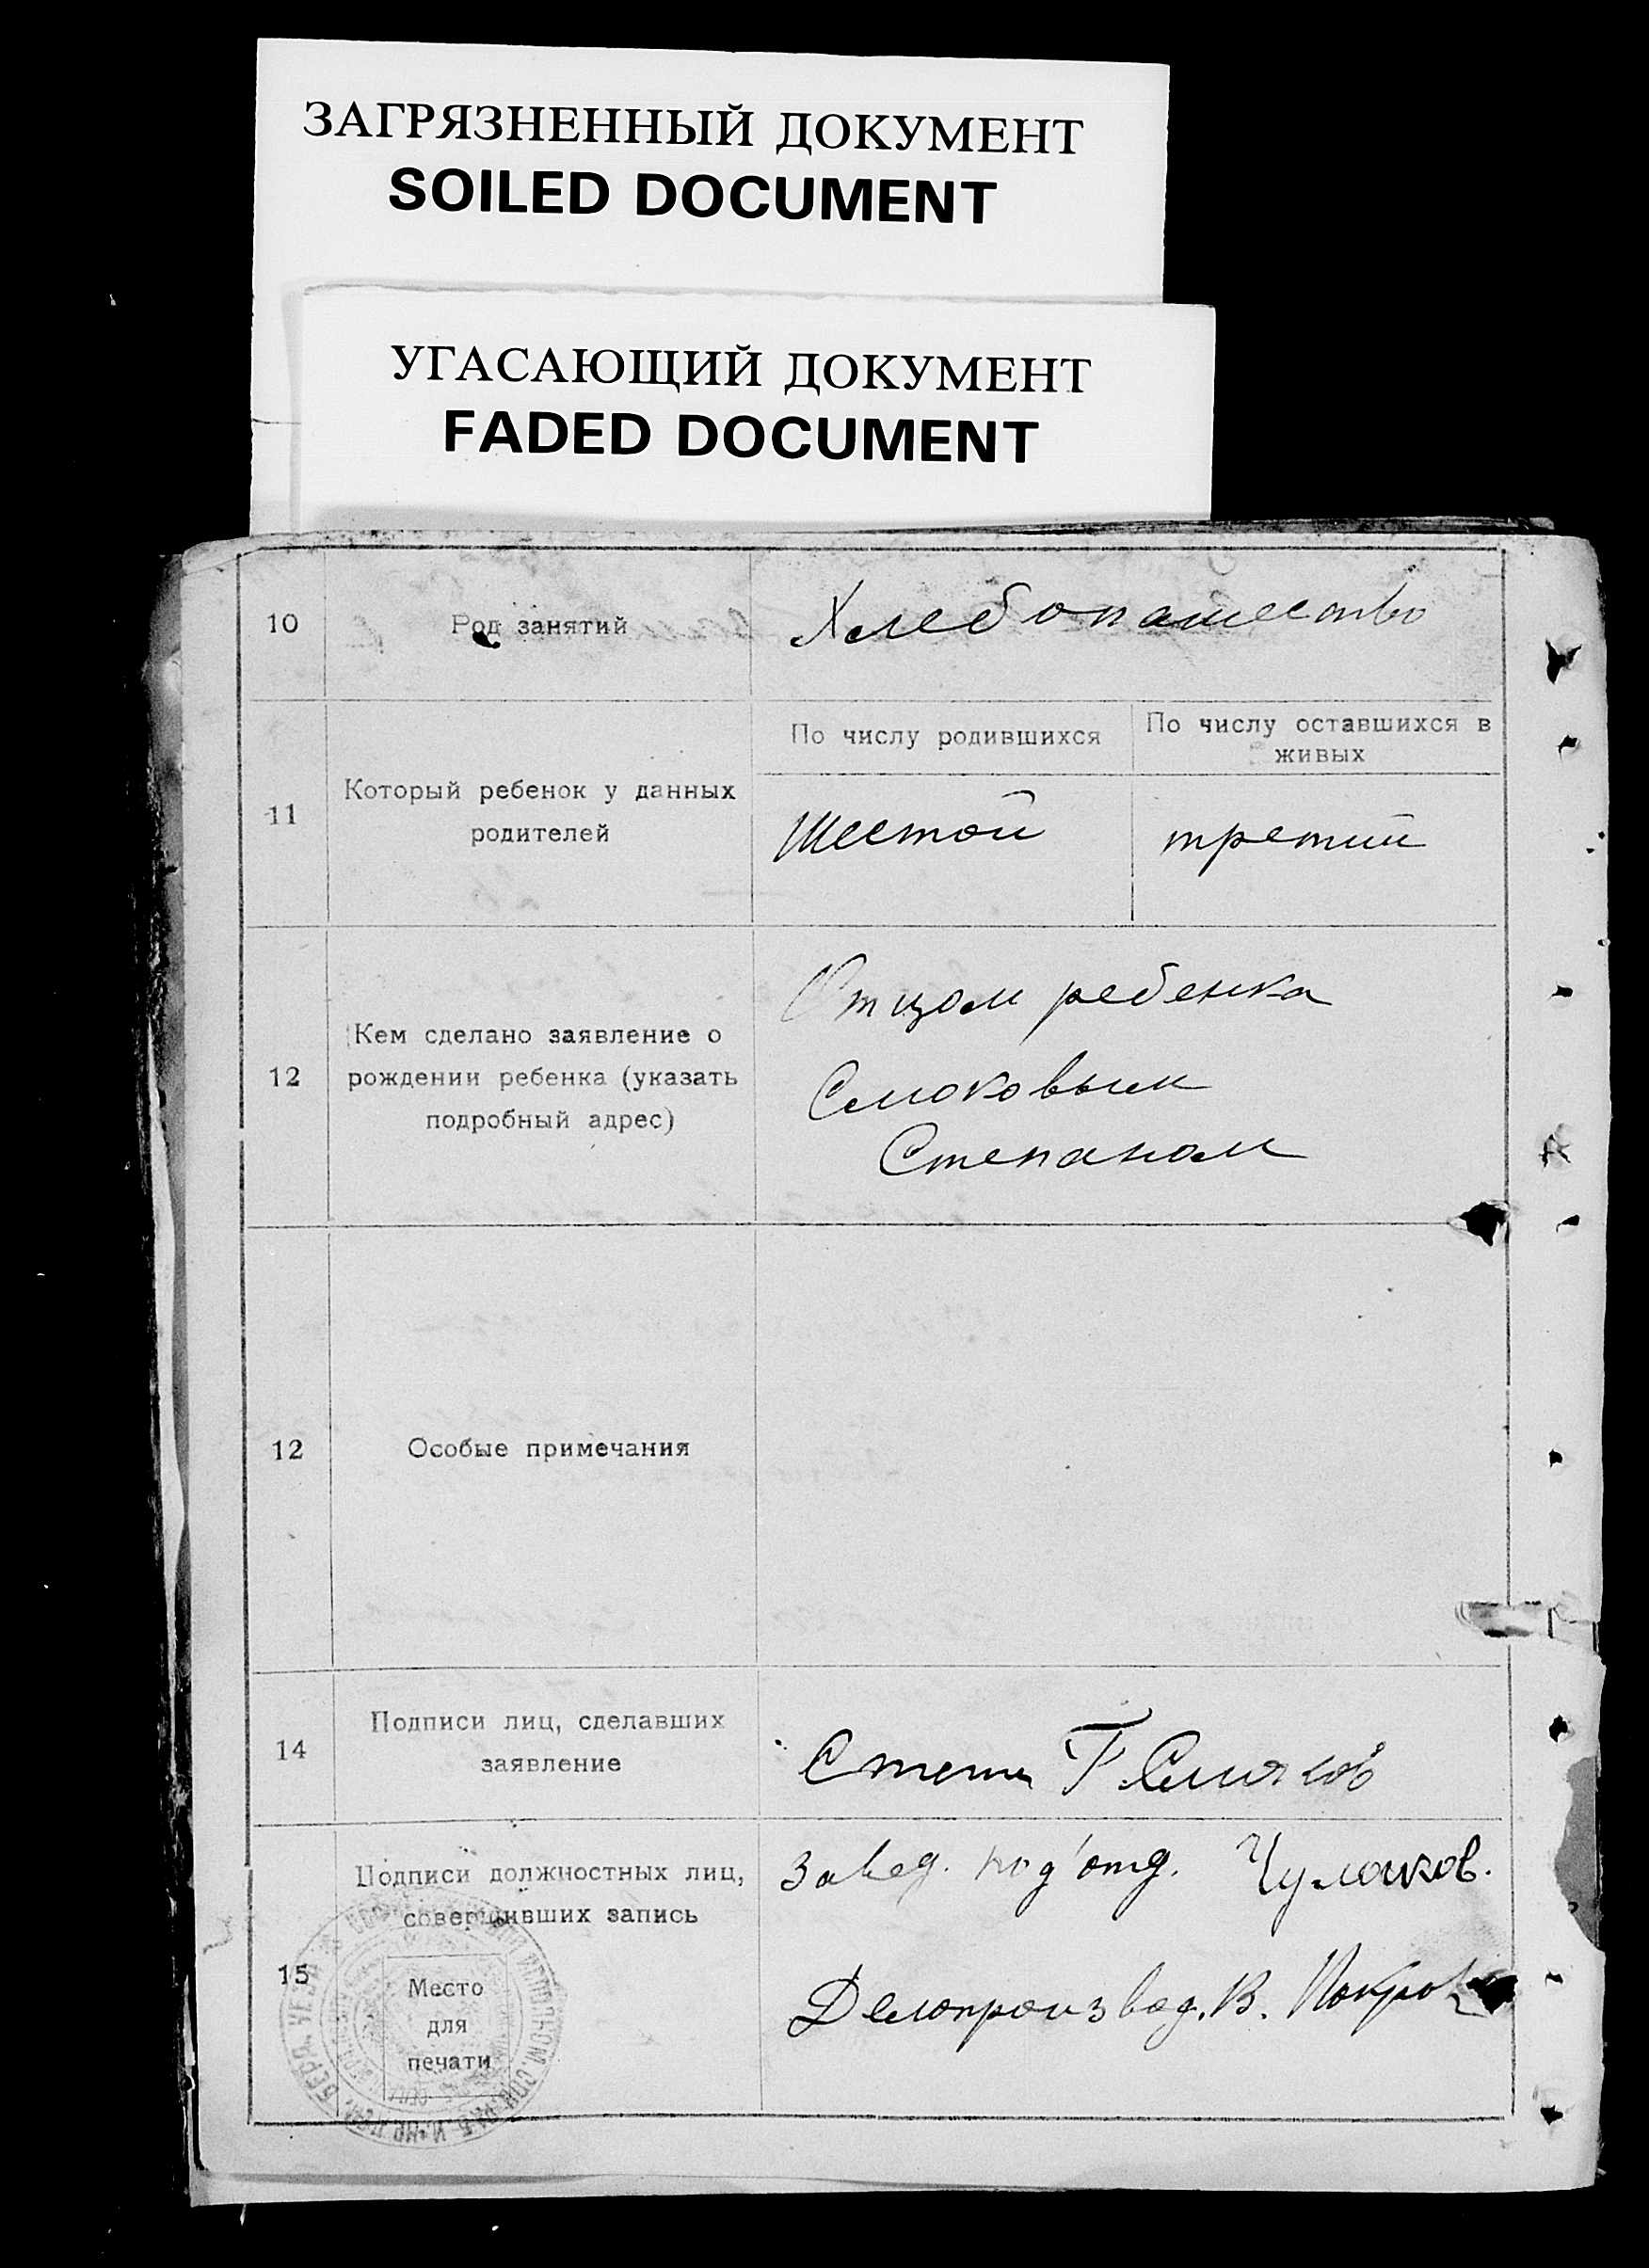 ЗАГРЯЗНЕННЫЙ ДОКУМЕНТ
SOILED DOCUMENT
УГАСАЮЩИЙ ДОКУМЕНТ
FADED DOCUMENT
10
Род занятий
Хлебопашество
11
Который ребенок у данных
родителей
По числу родившихся
По числу оставшихся в
живых
Шестой
третий
12
Кем сделано заявление о
рождении ребенка (указать
подробный адрес)
Отцом ребенка
Смоковым
Степаном
12
Особые примечания
14
Подписи лиц, сделавших
заявление
15
Подписи должностных лиц,
совершивших запись
Завед. под'отд.
Делопроизвод. В.
Место
для
печати